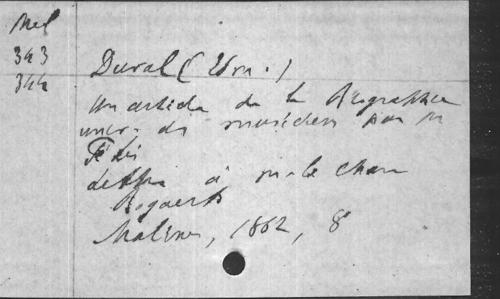 Mel
343
344
Duval (Edm.)
Un article de la Biographie
univ. des musiciens par M
Fétis
lettre à M. le chan
Bogaerts
Malines, 1862, 8°